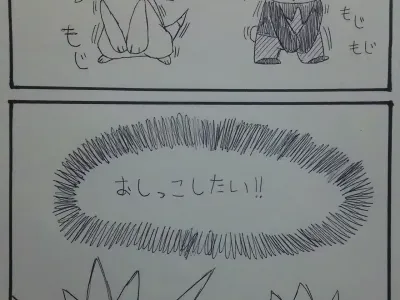 もじ
もじ
もじ
おしっこしたい!!